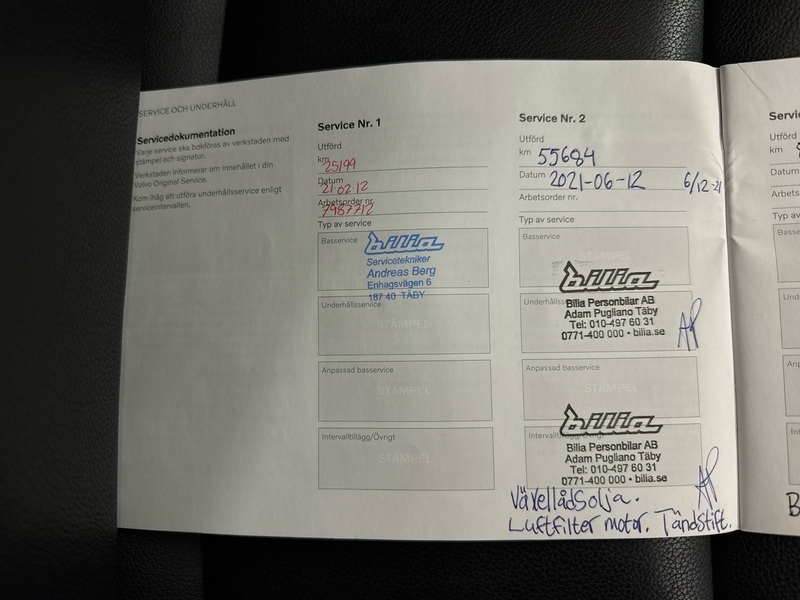 SERVICE OCH UNDERHÅLL
Servicedokumentation
Varje service ska bokföras av verkstaden med
stämpel och signatur.
Verkstaden informerar om innehållet i din
Volvo Original Service.
Kom ihåg att utföra underhållsservice enligt
serviceintervallen.
Service Nr. 1
Utförd
km 25199
Datum 21 02 12
Arbetsorder nr. 7987712
Typ av service
Basservice
bilia
Servicetekniker
Andreas Berg
Enhagsvägen 6
187 40 TÄBY
Underhållsservice
STÄMPEL
Anpassad basservice
STÄMPEL
Intervalltillägg/Övrigt
STÄMPEL
Service Nr. 2
Utförd
km 55684
Datum 2021-06-12 6/12-21
Arbetsorder nr.
Typ av service
Basservice
STÄMPEL
bilia
Underhållsservice
Bilia Personbilar AB
Adam Pugliano Täby
Tel: 010-497 60 31
0771-400 000 • bilia.se
AP
Anpassad basservice
STÄMPEL
bilia
Intervalltillägg/Övrigt
Bilia Personbilar AB
Adam Pugliano Täby
Tel: 010-497 60 31
0771-400 000 • bilia.se
AP
Växellådsolja.
Luftfilter motor. Tändstift.
Utförd
km
Datum
Typ av